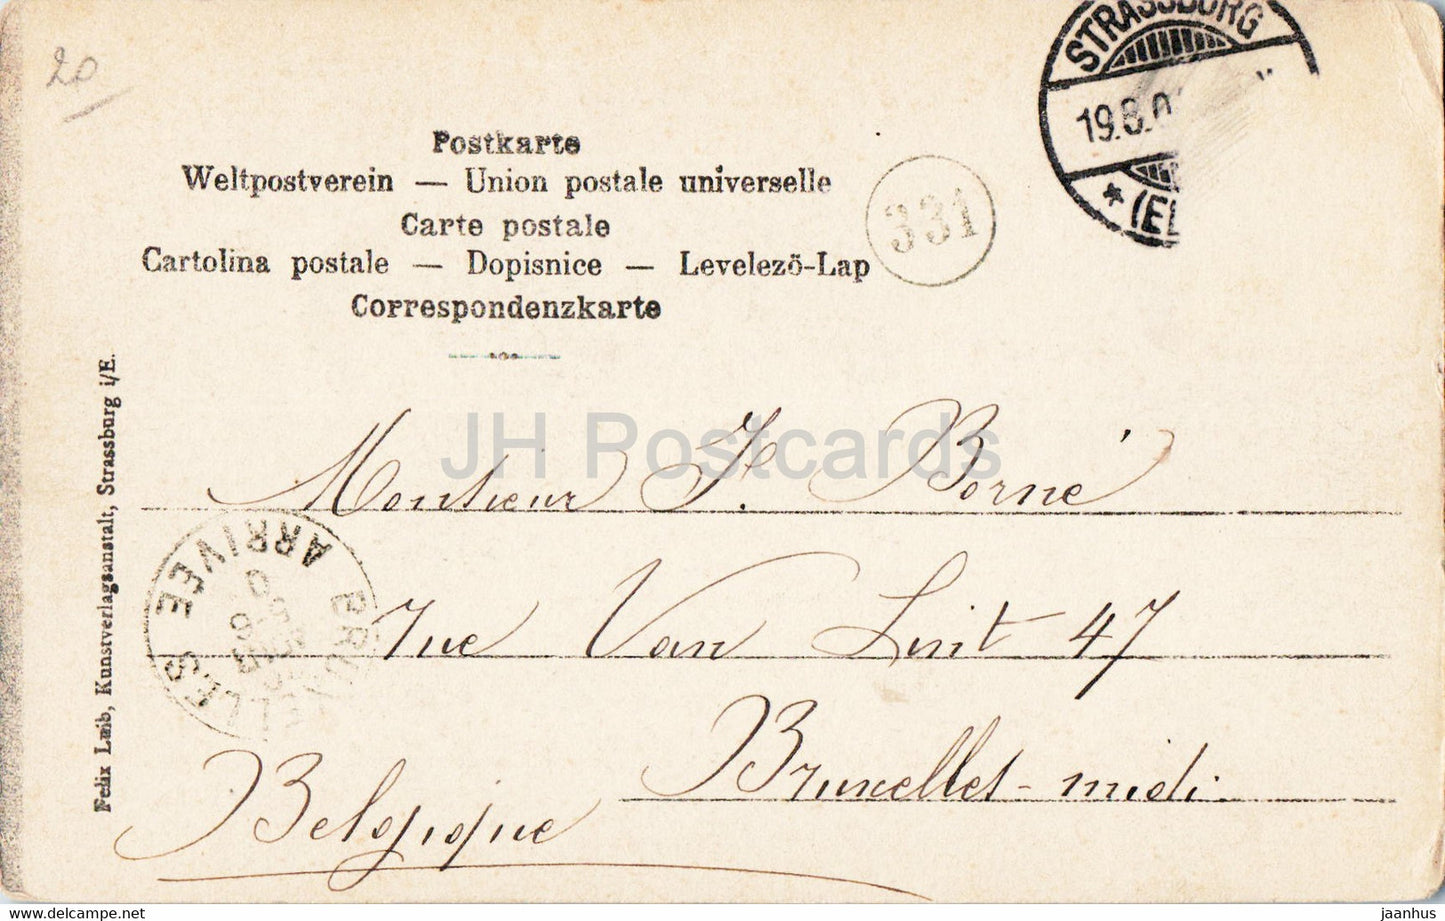 20
STRASSBURG
19.8.0
* (EL
Postkarte
Weltpostverein — Union postale universelle
331
Carte postale
Cartolina postale — Dopisnice — Levelező-Lap
Correspondenzkarte
Felix Luib, Kunstverlagsanstalt, Strassburg i/E.
JH Postcards
Monsieur J. Borné
rue Van Lint 47
BRUXELLES
ARRIVÉE
Bruxelles-midi
Belgique
https://www.delcampe.net
jaanhus